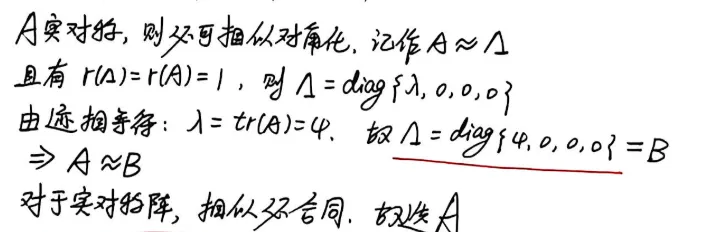 A实对称,则必可相似对角化,记作 A≈Λ
且有 r(Λ)=r(A)=1,则 Λ=diag{λ,0,0,0}
由迹相等得:λ=tr(A)=4. 故 Λ=diag{4,0,0,0}=B
⇒ A≈B
对于实对称阵,相似必合同.故选A